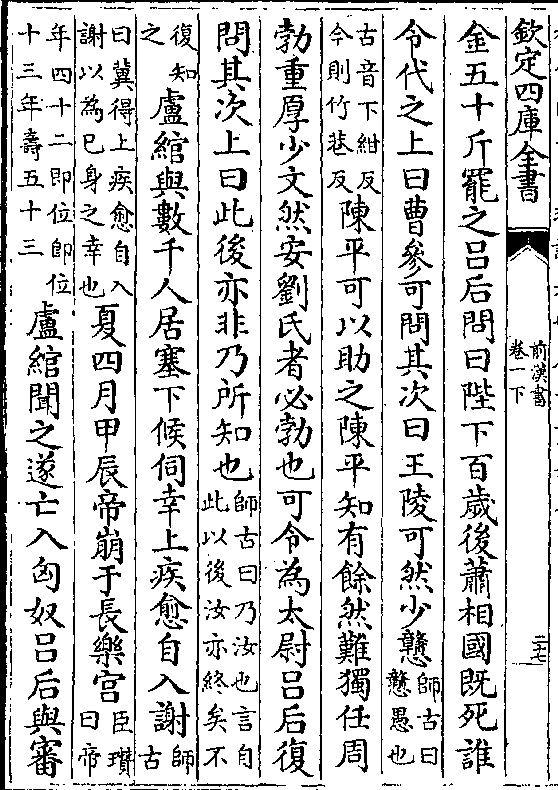 欽定四庫全書
前漢書
卷一下
二十七
金五十斤罷之吕后問曰陛下百歲後蕭相國既死誰
令代之上曰曹參可問其次曰王陵可然少戇師古曰
戇愚也
古音下紺反
今則竹巷反陳平可以助之陳平知有餘然難獨任周
勃重厚少文然安劉氏者必勃也可令為太尉吕后復
問其次上曰此後亦非乃所知也師古曰乃汝也言自
此以後汝亦終矣不
復知
之盧綰與數千人居塞下候伺幸上疾愈自入謝師
古
曰冀得上疾愈自入
謝以為己身之幸也夏四月甲辰帝崩于長樂宫臣瓚
曰帝
年四十二即位即位
十三年壽五十三盧綰聞之遂亡入匈奴吕后與審